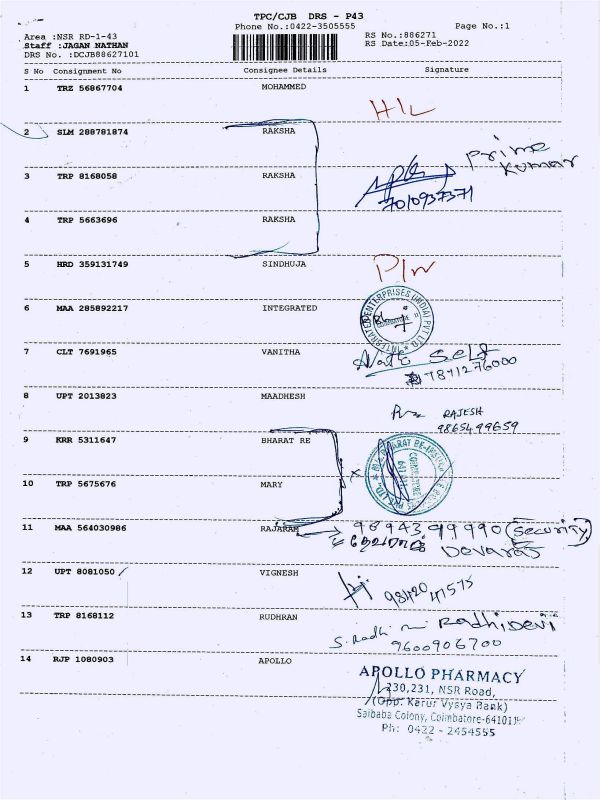 TPC/CJB DRS - P43
Phone No.:0422-3505555 Page No.:1
Area :NSR RD-1-43 RS No.:886271
Staff :JAGAN NATHAN RS Date:05-Feb-2022
DRS No. :DCJB88627101
S No Consignment No Consignee Details Signature
1 TRZ 56867704 MOHAMMED
H/L
2 SLM 288781874 RAKSHA
Prime
Kumar
3 TRP 8168058 RAKSHA
7010937371
4 TRP 5663696 RAKSHA
5 HRD 359131749 SINDHUJA
P/W
6 MAA 285892217 INTEGRATED
INTEGRATED ENTERPRISES (INDIA) PVT LTD
7 CLT 7691965 VANITHA
Self
7871276000
8 UPT 2013823 MAADHESH
RAJESH
9865499659
9 KRR 5311647 BHARAT RE
10 TRP 5675676 MARY
11 MAA 564030986 RAJARAM
98943 99990 (Security)
தேவராஜ்
Devaraj
12 UPT 8081050
VIGNESH
98420 47575
13 TRP 8168112 RUDHRAN
S. Radhi Radhidevi
9600906700
14 RJP 1080903 APOLLO
APOLLO PHARMACY
230,231, NSR Road,
(Opp. Karur Vysya Bank)
Saibaba Colony, Coimbatore-641011
Ph: 0422 - 2454555